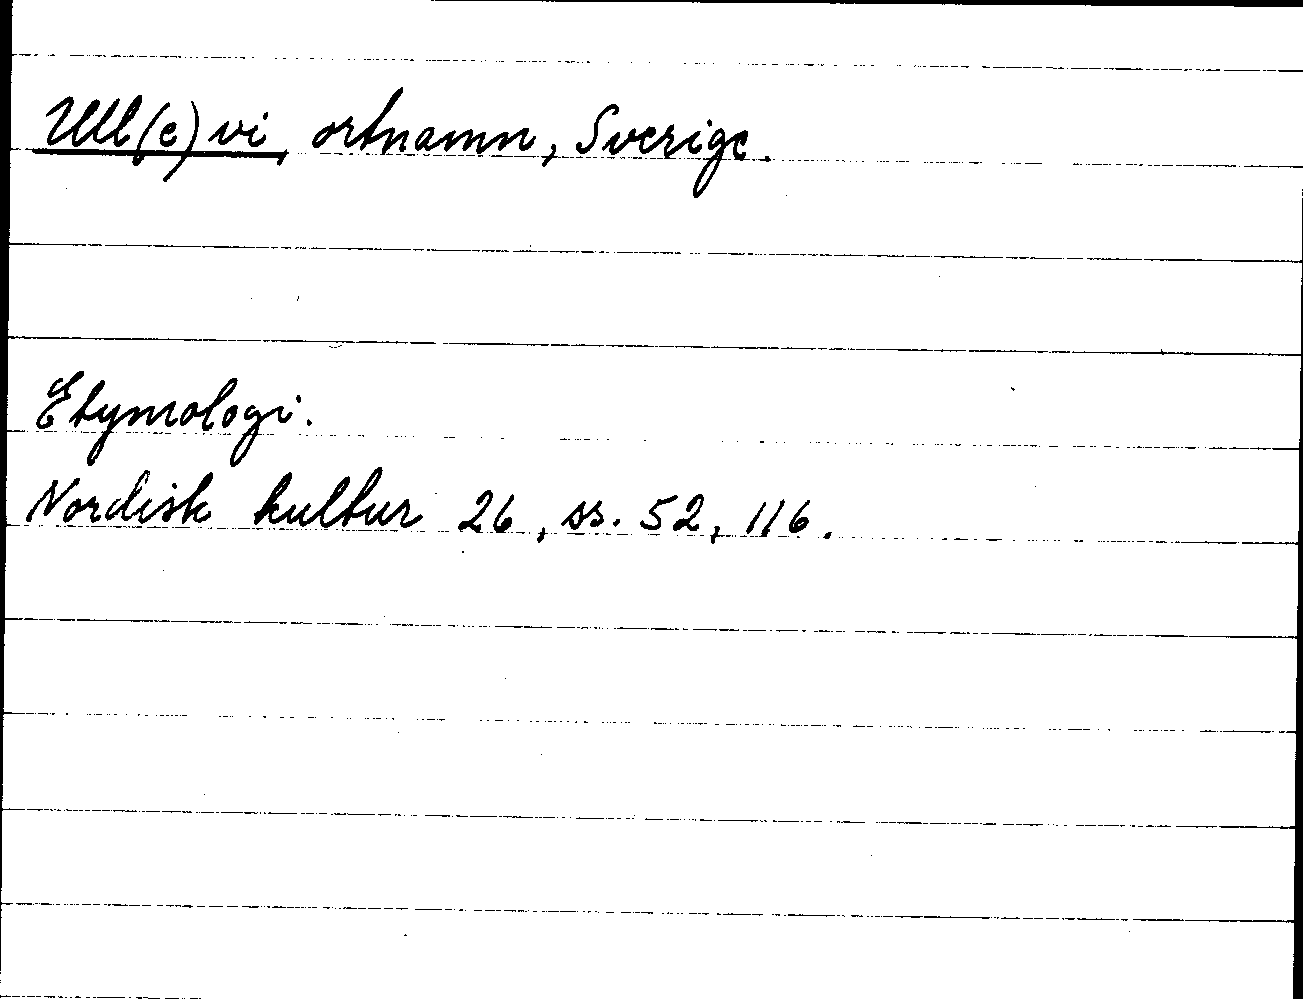 Ull(e)vi, ortnamn, Sverige.
Etymologi.
Nordisk kultur 26, ss. 52, 116.